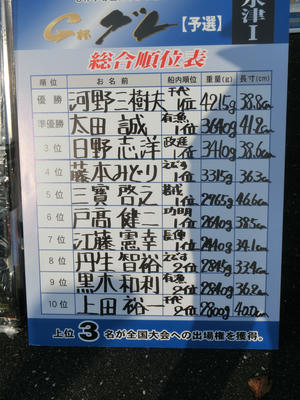 G杯 グレ 【予選】 米水津Ⅰ
総合順位表
順位 お名前 船内順位 重量(g) 長寸(cm)
優勝 河野三樹夫 千代 1位 4215g 38.8cm
準優勝 太田 誠 有漁 1位 3640g 41.2cm
3位 日野志洋 政進 1位 3410g 38.6cm
4位 藤本みどり こだま 1位 3315g 36.3cm
5位 三寳啓之 1位 2765g 46.6cm
6位 戸髙健二 功明 1位 2640g 38.5cm
7位 江藤憲幸 長伸 1位 2440g 34.1cm
8位 丹生智裕 こだま 2位 2845g 33.4cm
9位 黒木和利 有漁 2位 2840g 36.8cm
10位 上田 裕 千代 2位 2800g 40.0cm
上位3名が全国大会への出場権を獲得。